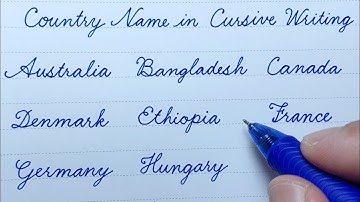 Country Name in Cursive Writing
Australia Bangladesh Canada
Denmark Ethiopia France
Germany Hungary